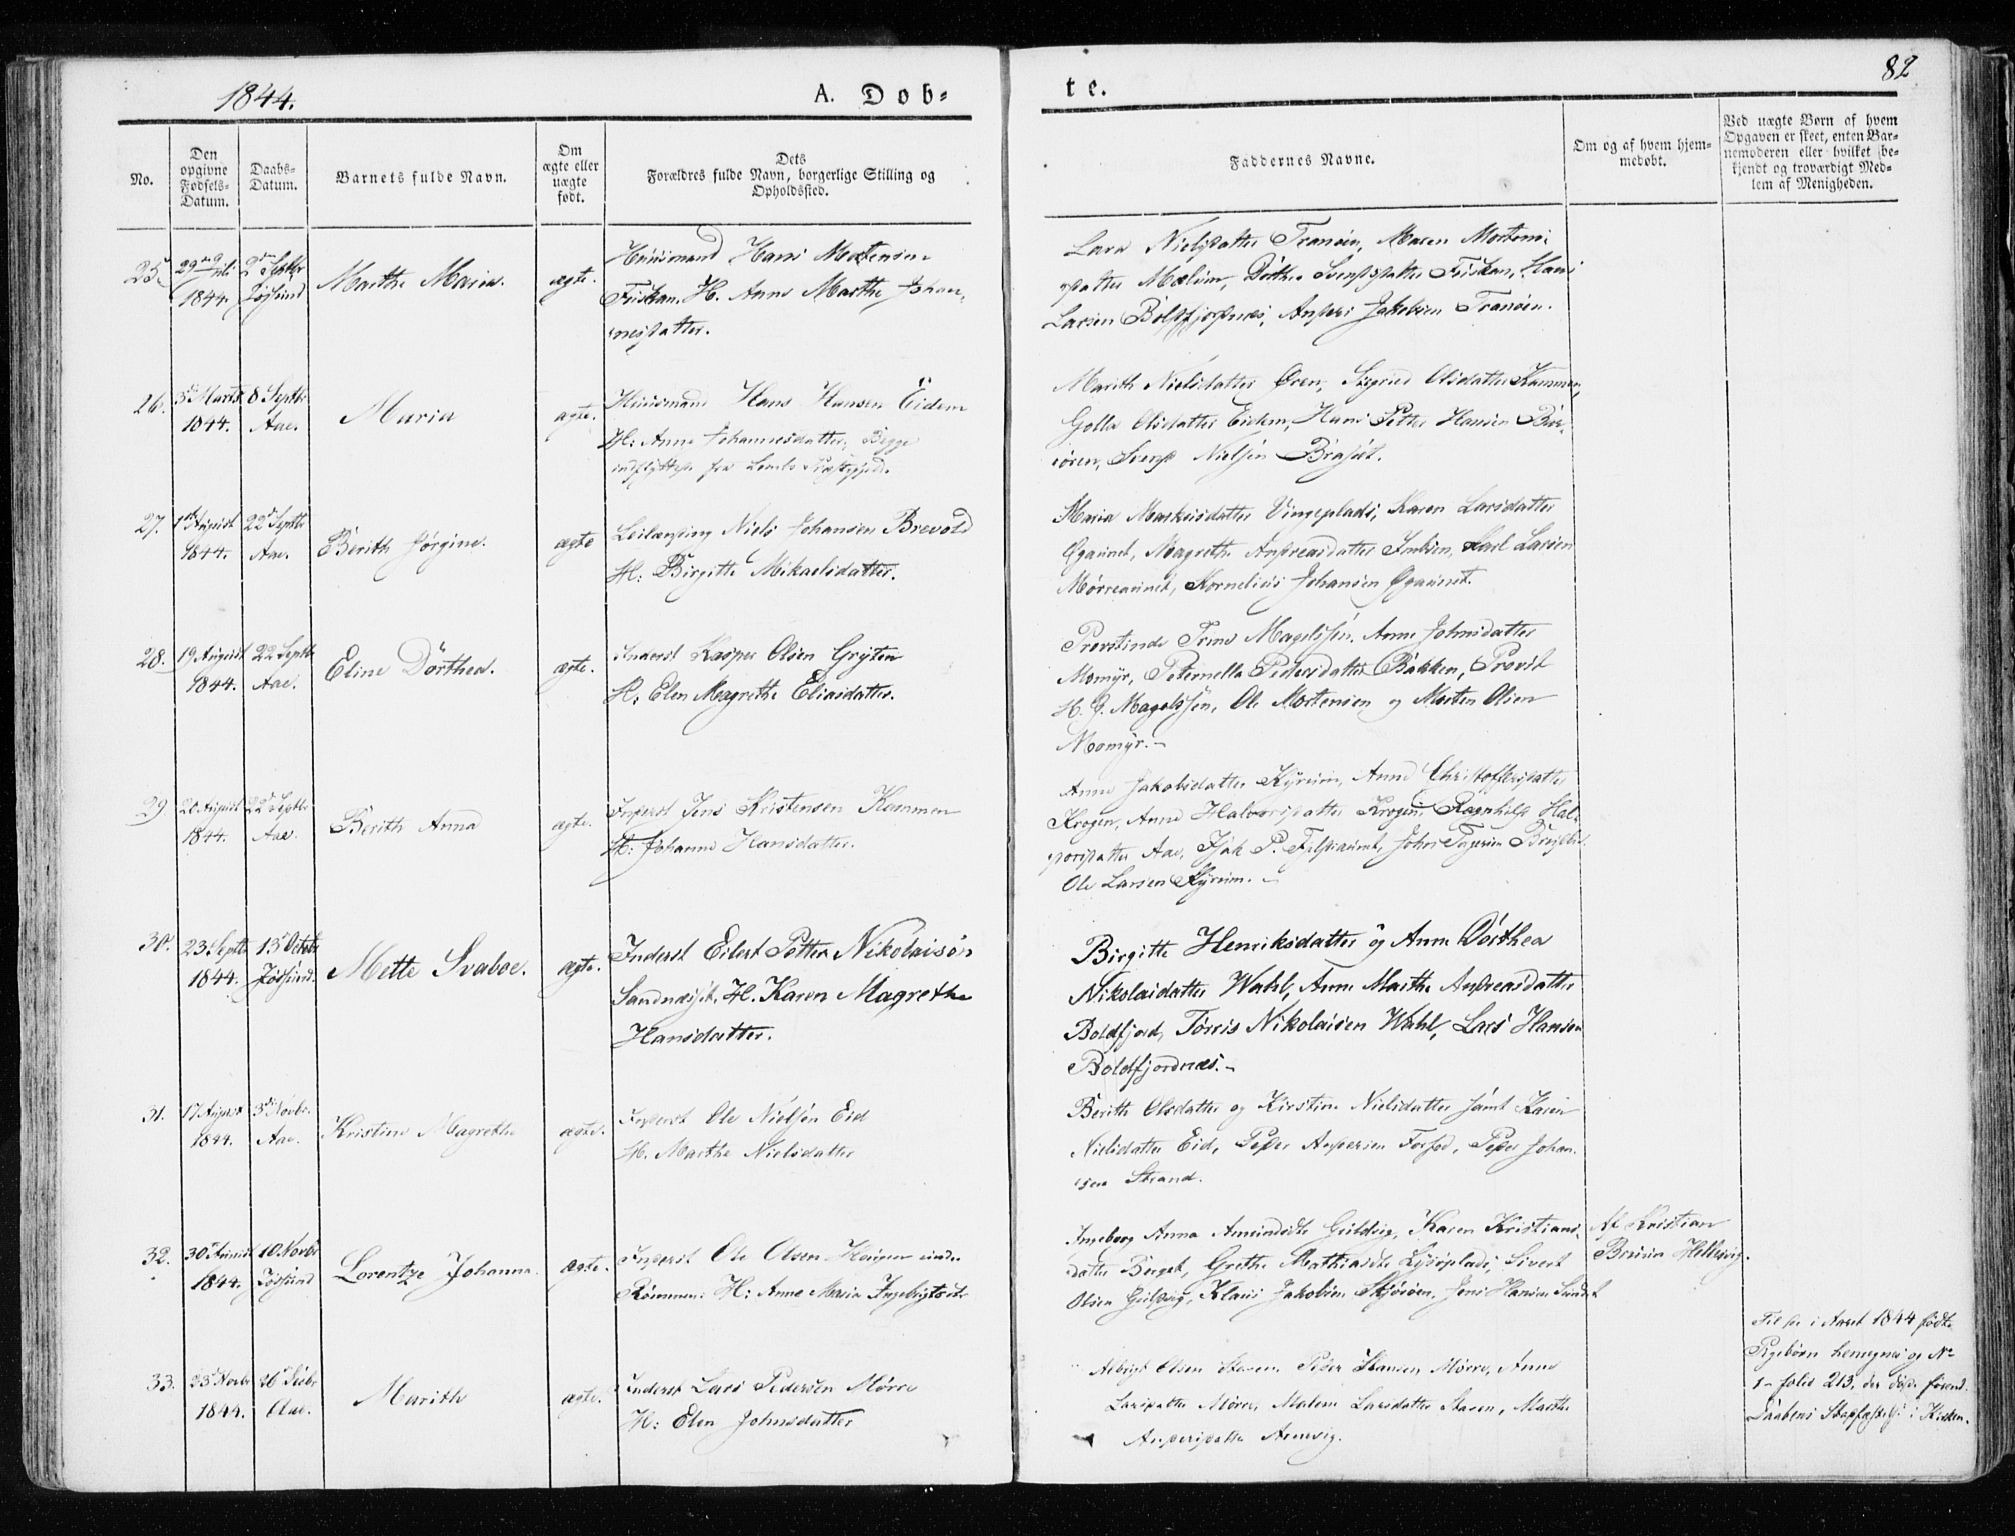 1844.
A. Døb=
te.
82
No.
Den opgivne Fødsels-Datum.
Daabs-Datum.
Barnets fulde Navn.
Om ægte eller uægte født.
Dets Forældres fulde Navn, borgerlige Stilling og Opholdssted.
Faddernes Navne.
Om og af hvem hjemmedøbt.
Ved uægte Børn af hvem Opgaven er skeet, enten Barnemoderen eller hvilket bekjendt og troværdigt Medlem af Menigheden.
25. 29 Juli 1844. 2 Septbr Jøssund Marthe Maria. ægte.
Huusmand Hans Mortensen
Fuskan. H. Anne Marthe Johan-
nesdatter.
Lara Nielsdatter Tranøen, Maren Mortens-
datter Mælan, Dorthea Svendsdatter Fuskan, Hans
Larsen Boldfjordnæs, Anders Jakobsen Tranøen.
26. 3 Marts 1844. 8 Septbr Aae. Maria ægte.
Huusmand Hans Hansen Eidem
H: Anne Johannesdatter, Begge
indflyttede fra Præstegjeld.
Marith Nielsdatter Øren, Sigrid Olsdatter Kammen,
Golla Olsdatter Eidem, Hans Petter Hansen
Svend Nielsen
27. 1 August 1844. 22 Septbr Aae. Berith Jørgine. ægte
Leilænding Niels Johansen Brevold
H: Birgitte Mikaelsdatter.
Maria Markusdatter Vingeplads, Karen Larsdatter
Øgaunet, Magrethe Andreasdatter Karl Larsen
Mørreaunet, Kornelius Johansen Øgaunet.
28. 19 August 1844. 22 Septbr Aae. Eline Dorthea. ægte.
Inderst Kasper Olsen Gryten
H: Elen Magrethe Eliasdatter.
Provstinde Trine Magelssen, Anne Johnsdatter
Momyr, Peternella Pedersdatter Bakken, Provst
H. G. Magelssen, Ole Mortensen og Morten Olsen
Momyr.-
29. 20 August 1844. 22 Septbr Aae. Berith Anna ægte.
Inderst Jens Kristensen Kammen
H: Johanna Hansdatter.
Anne Jakobsdatter Kyreim, Anne Christoffersdatter
Krogen, Anne Halvorsdatter Krogen, Ragnhild Hal-
vorsdatter Aae, Isak P. John
Ole Larsen Kyreim.-
30. 23 Septbr 1844. 13 Octobr Jøssund. Mette Svaboe. ægte.
Inderst Eilert Petter Nikolaisøn
Sandnæsset, H. Karen Magrethe
Hansdatter.
Birgitte Henriksdatter og Anne Dorthea
Nikolaidatter Wahl, Anne Marthe Andreasdatter
Boldfjord, Torris Nikolaisen Wahl, Lars Hansen
Boldfjordnæs.-
31. 17 August 1844. 3 Novbr. Aae. Kristine Magrethe ægte.
Inderst Ole Nielsen Eid
H. Marthe Nielsdatter
Berith Olsdatter og Kirstine Nielsdatter samt Karen
Nielsdatter Eid, Peder Andersen Forfod, Peder Johan-
sen Strand.
32. 30 August 1844. 10 Novbr Jøssund Lorentze Johanna. ægte.
Inderst Ole Olsen
H: Anne Maria Ingebrigtsdtr
Ingeborg Anna Guldvig, Karen Kristians-
datter Grethe Mathiasdtr Sivert
Olsen Guldvig, Klaus Jakobsen Jens Hansen Sundet
Af Kristian
Hellesvig.
33. 23 Novbr 1844. 26 Decbr Aae. Marith ægte.
Inderst Lars Pedersen Mørre
H: Elen Johnsdatter
Albrigt Olsen Staven, Peder Hansen Mørre, Anne
Larsdatter Mørre, Malene Larsdatter Staven, Marthe
Andersdatter Arnevig.
Til de i Aaret 1844 fødte
Pigebørn henregnes og No
1 - folio 213, der døde forend
Daabens Stadfæstelse i Kirken.